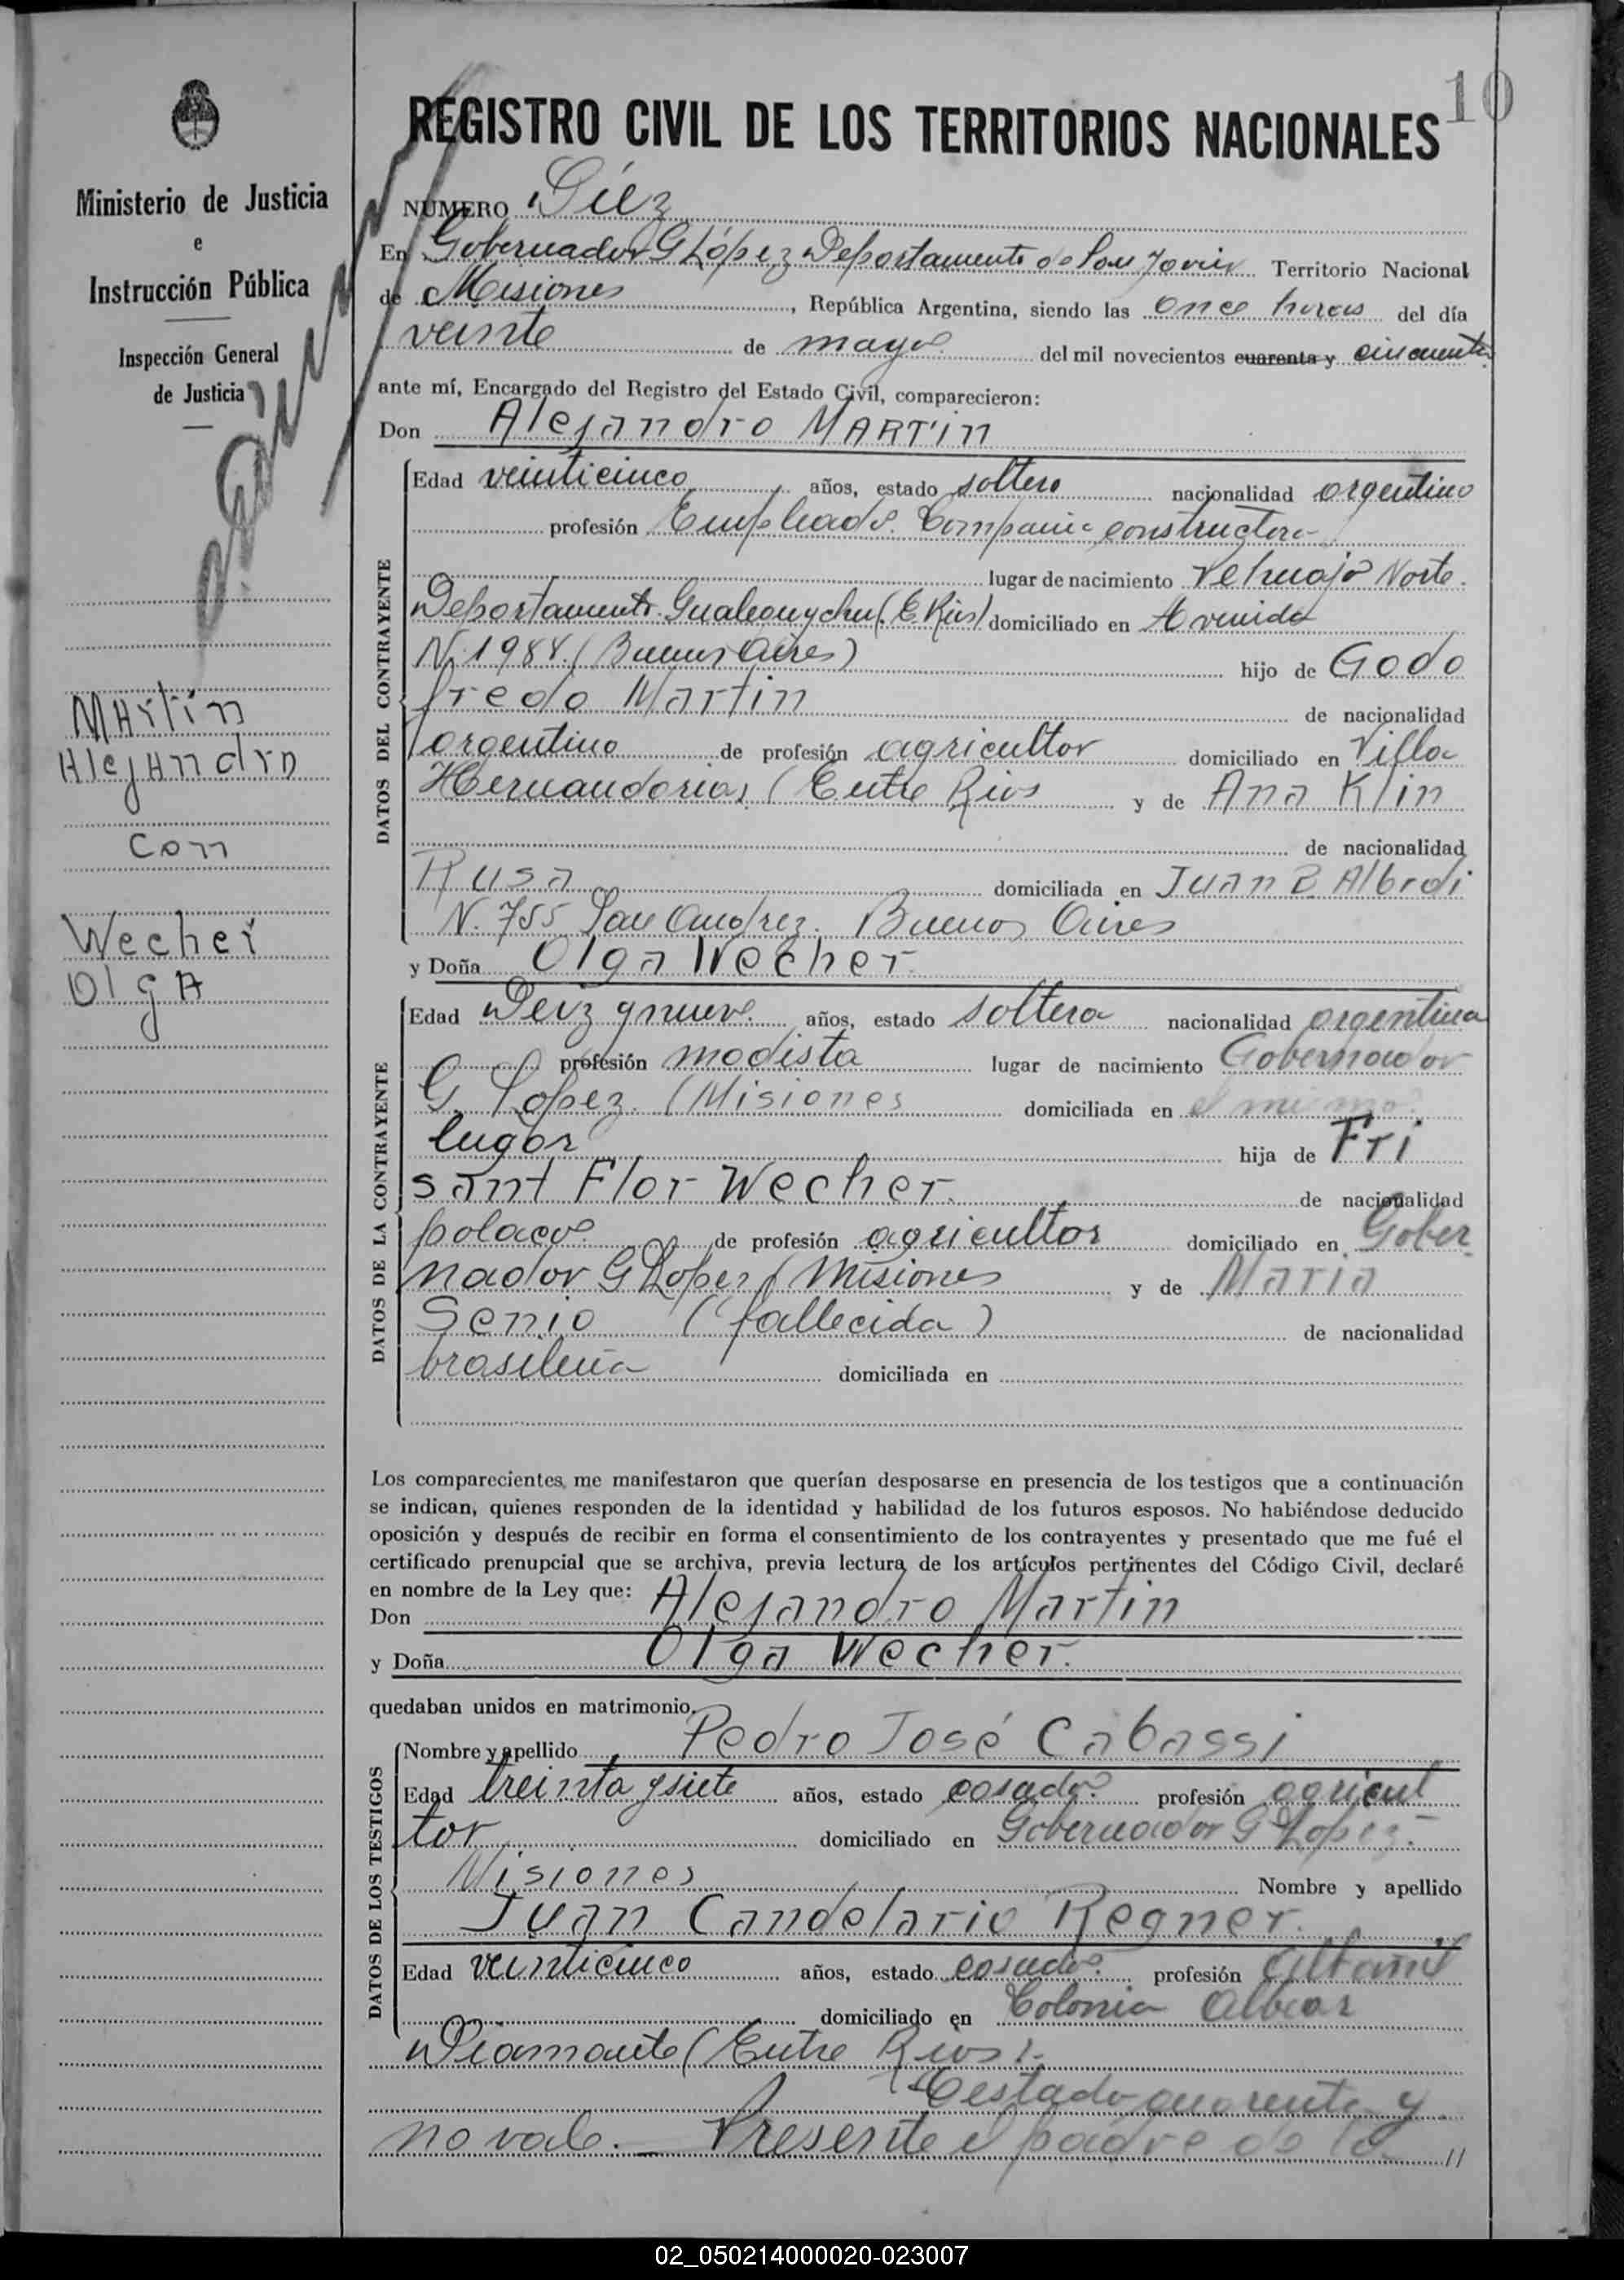 10
REGISTRO CIVIL DE LOS TERRITORIOS NACIONALES
Ministerio de Justicia
e
Instrucción Pública
Inspección General
de Justicia
Martin
Alejandro
con
Wecher
Olga
NÚMERO Diéz
En Gobernador G López Departamento de San Javier Territorio Nacional
de Misiones, República Argentina, siendo las once horas del día
veinte de mayo del mil novecientos cuarenta y cincuenta
ante mí, Encargado del Registro del Estado Civil, comparecieron:
Don Alejandro MARTIN
DATOS DEL CONTRAYENTE
Edad veinticinco años, estado soltero nacionalidad argentino
profesión Empleado Compañia constructora
lugar de nacimiento Pehuajó Norte
Departamento Gualeguychu (E. Rios) domiciliado en Avenida
N. 1984 (Buenos Aires) hijo de Godo
fredo Martin de nacionalidad
argentino de profesión agricultor domiciliado en Villa
Hernandarias (Entre Rios y de Ana Klin
de nacionalidad
Rusa domiciliada en Juan B. Albrdi
N. 755 San Andrez. Buenos Aires
y Doña Olga Wecher
DATOS DE LA CONTRAYENTE
Edad Deiz y nueve años, estado soltera nacionalidad argentina
profesión modista lugar de nacimiento Gobernador
G. Lopez (Misiones domiciliada en el mismo
lugar hija de Fri
sant Flor Wecher de nacionalidad
polaco de profesión agricultor domiciliado en Gober
nador G Lopez (Misiones y de Maria
Senio (fallecida) de nacionalidad
brasileña domiciliada en
Los comparecientes me manifestaron que querían desposarse en presencia de los testigos que a continuación
se indican, quienes responden de la identidad y habilidad de los futuros esposos. No habiéndose deducido
oposición y después de recibir en forma el consentimiento de los contrayentes y presentado que me fué el
certificado prenupcial que se archiva, previa lectura de los artículos pertinentes del Código Civil, declaré
en nombre de la Ley que:
Don Alejandro Martin
y Doña Olga Wecher.
quedaban unidos en matrimonio.
DATOS DE LOS TESTIGOS
Nombre y apellido Pedro José Cabassi
Edad treinta y siete años, estado casado profesión agricul
tor domiciliado en Gobernador G Lopez.
Misiones Nombre y apellido
Juan Candelario Regner.
Edad veinticinco años, estado casado profesión
domiciliado en Colonia Albear
Diamante (Entre Rios).
testado cuarenta y
no vale. Presente el padre de la //
02_050214000020-023007